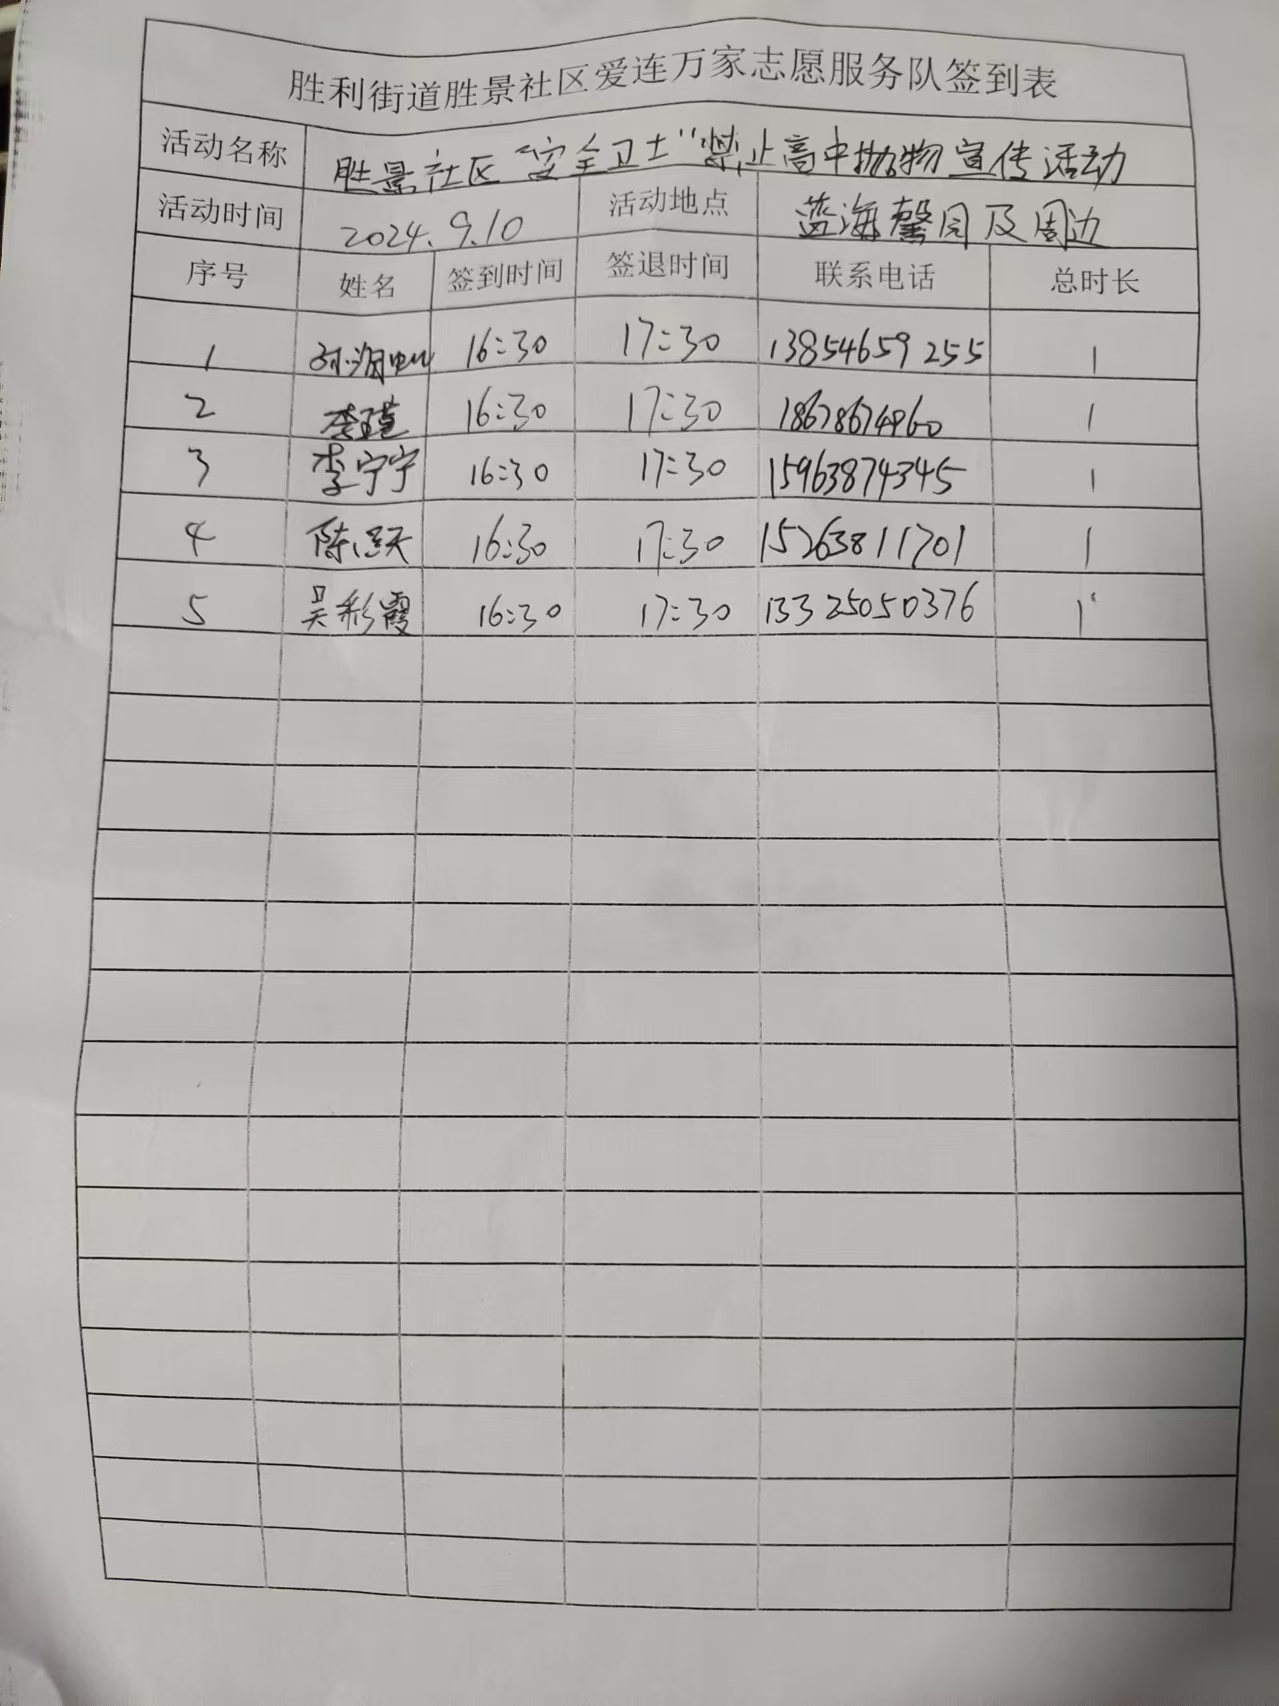 胜利街道胜景社区爱连万家志愿服务队签到表
活动名称 胜景社区“安全卫士”禁止高中抛物宣传活动
活动时间 2024.9.10 活动地点 蓝海馨园及周边
序号 姓名 签到时间 签退时间 联系电话 总时长
1 16:30 17:30 13854659255 1
2 李瑾 16:30 17:30 18678674960 1
3 李宁宁 16:30 17:30 15963874345 1
4 陈 16:30 17:30 15263811701 1
5 吴彩霞 16:30 17:30 13325050376 1